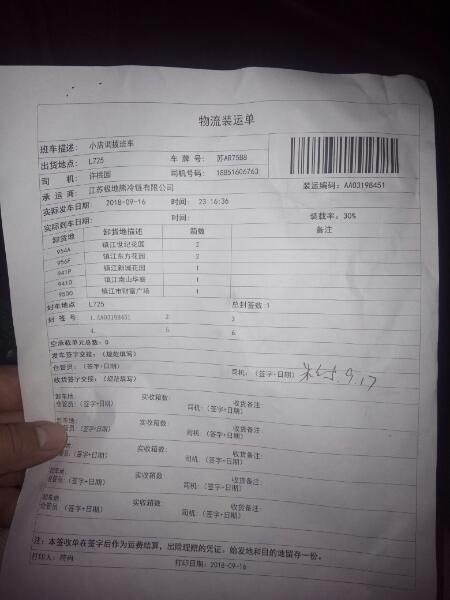 物流装运单
班车描述: 小店调拨班车
出货地点: L725 车 牌 号: 苏AR75B8
司 机: 许桃园 司机号码: 18851606763
承 运 商: 江苏极地熊冷链有限公司 装运编码: AA03198451
实际发车日期: 2018-09-16 时间: 23 16:36
实际到车日期: 时间: 装载率: 30%
卸货地 卸货地描述 箱数 备注
954A 镇江世纪花园 2
956F 镇江东方花园 2
941P 镇江新城花园 1
9410 镇江南山华庭 1
9500 镇江市财富广场 1
封车地点 L725 总封签数:1
封 签 号 1.AA03198451 2. 3.
4. 5. 6.
空承载单元总数: 0
发车签字交接: (规范填写)
仓管员: (签字+日期) 司机: (签字+日期) 9.17
收货签字交接: (规范填写)
卸车地: 实收箱数: 收货备注:
仓管员: (签字+日期) 司机: (签字+日期)
卸车地: 实收箱数: 收货备注:
仓管员: (签字+日期) 司机: (签字+日期)
卸车地: 实收箱数: 收货备注:
仓管员: (签字+日期) 司机: (签字+日期)
卸车地: 实收箱数: 收货备注:
仓管员: (签字+日期) 司机: (签字+日期)
卸车地: 实收箱数: 收货备注:
仓管员: (签字+日期) 司机: (签字+日期)
注: 本签收单在签字后作为运费结算, 出险理赔的凭证。始发地和目的地留存一份。
打印人: 打印日期: 2018-09-16